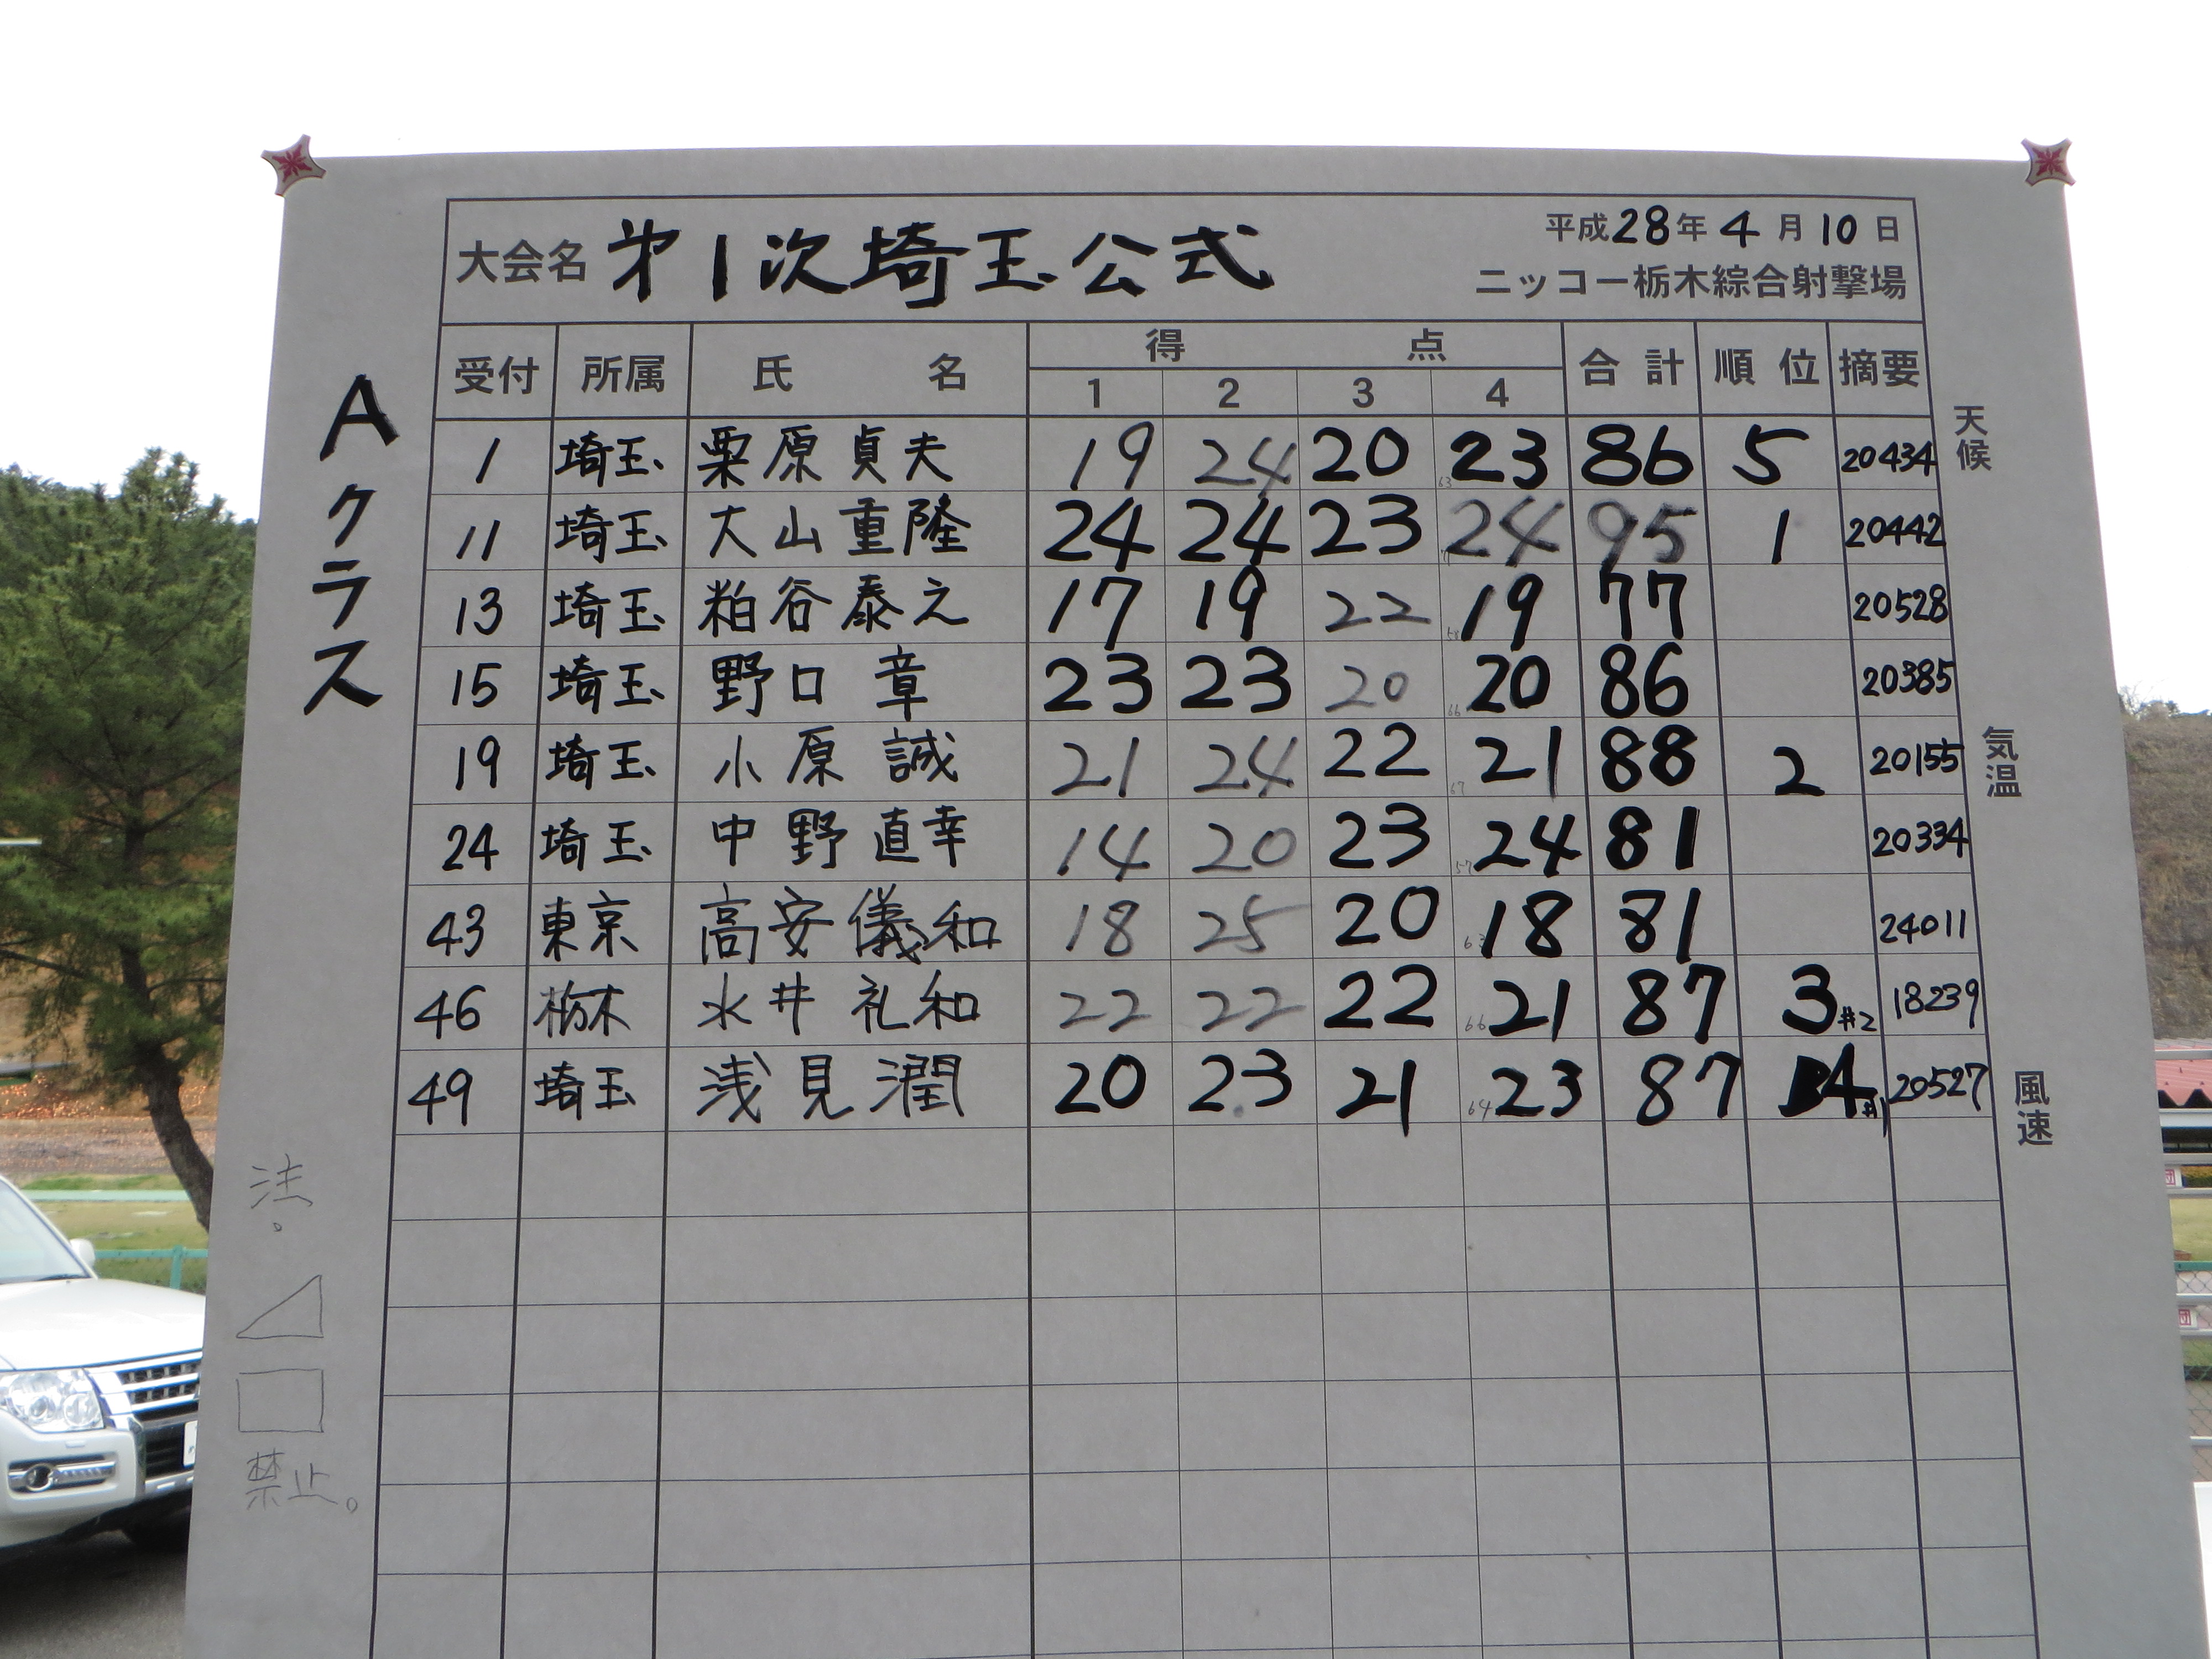 大会名 第1次埼玉公式
平成28年4月10日
ニッコー栃木綜合射撃場
Aクラス
受付 所属 氏名 得点 合計 順位 摘要
1 2 3 4
1 埼玉 栗原貞夫 19 24 20 63 23 86 5 20434
11 埼玉 大山重隆 24 24 23 24 95 1 20442
13 埼玉 粕谷泰之 17 19 22 58 19 77 20528
15 埼玉 野口章 23 23 20 66 20 86 20385
19 埼玉 小原誠 21 24 22 67 21 88 2 20155
24 埼玉 中野直幸 14 20 23 57 24 81 20334
43 東京 高安儀和 18 25 20 63 18 81 24011
46 栃木 水井礼和 22 22 22 66 21 87 3 #2 18239
49 埼玉 浅見潤 20 23 21 64 23 87 4 #1 20527
天候
気温
風速
禁止。